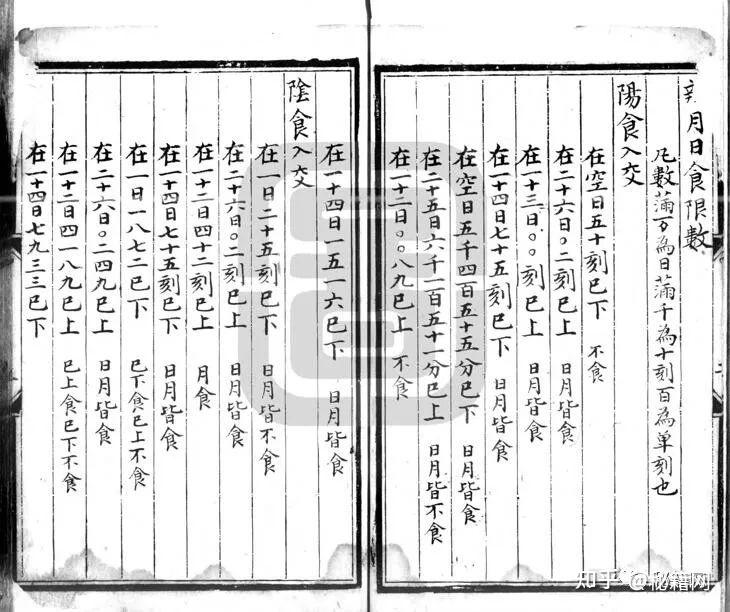 辨月日食限數
凡數滿万為日滿千為十刻百為单刻也
陽食入交
在空日五十刻已下 不食
在二十六日〇二刻已上 日月皆食
在一十三日〇〇刻已上 日月皆食
在一十四日七十五刻已下 日月皆食
在空日五千四百五十五分已下 日月皆食
在二十五日六千一百五十一分已上 日月皆不食
在一十二日〇〇八九已上 不食
在一十四日一五一六已下 日月皆食
陰食入交
在一日二十五刻已下 日月皆不食
在二十六日〇二刻已上 日月皆食
在一十二日四十二刻已上 月食
在一十四日七十五刻已下 日月皆食
在一日一八七二已下 已下食已上不食
在二十六日〇二四九已上 日月皆食
在一十二日四一八九已上 已上食已下不食
在一十四日七九三三已下
知乎 @秘籍网